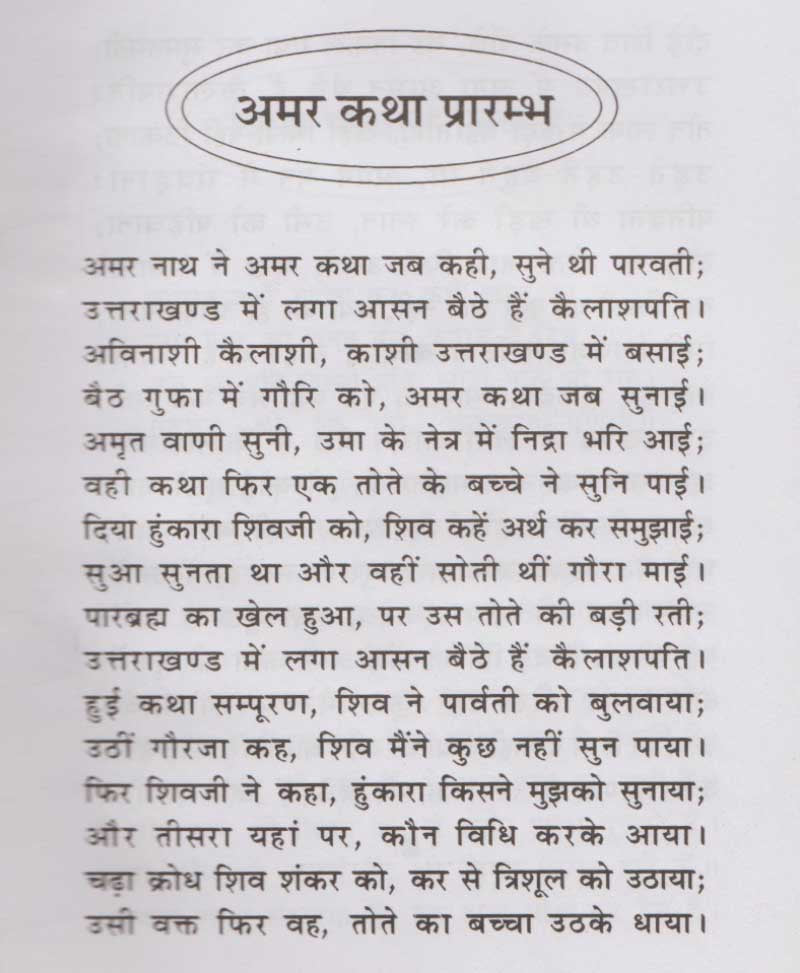 अमर कथा प्रारम्भ
अमर नाथ ने अमर कथा जब कही, सुने थी पारवती;
उत्तराखण्ड में लगा आसन बैठे हैं कैलाशपति।
अविनाशी कैलाशी, काशी उत्तराखण्ड में बसाई;
बैठ गुफा में गौरि को, अमर कथा जब सुनाई।
अमृत वाणी सुनी, उमा के नेत्र में निद्रा भरि आई;
वही कथा फिर एक तोते के बच्चे ने सुनि पाई।
दिया हुंकारा शिवजी को, शिव कहें अर्थ कर समुझाई;
सुआ सुनता था और वहीं सोती थीं गौरा माई।
पारब्रह्म का खेल हुआ, पर उस तोते की बड़ी रती;
उत्तराखण्ड में लगा आसन बैठे हैं कैलाशपति।
हुई कथा सम्पूरण, शिव ने पार्वती को बुलवाया;
उठीं गौरजा कह, शिव मैंने कुछ नहीं सुन पाया।
फिर शिवजी ने कहा, हुंकारा किसने मुझको सुनाया;
और तीसरा यहां पर, कौन विधि करके आया।
चढ़ा क्रोध शिव शंकर को, कर से त्रिशूल को उठाया;
उसी वक्त फिर वह, तोते का बच्चा उठके धाया।